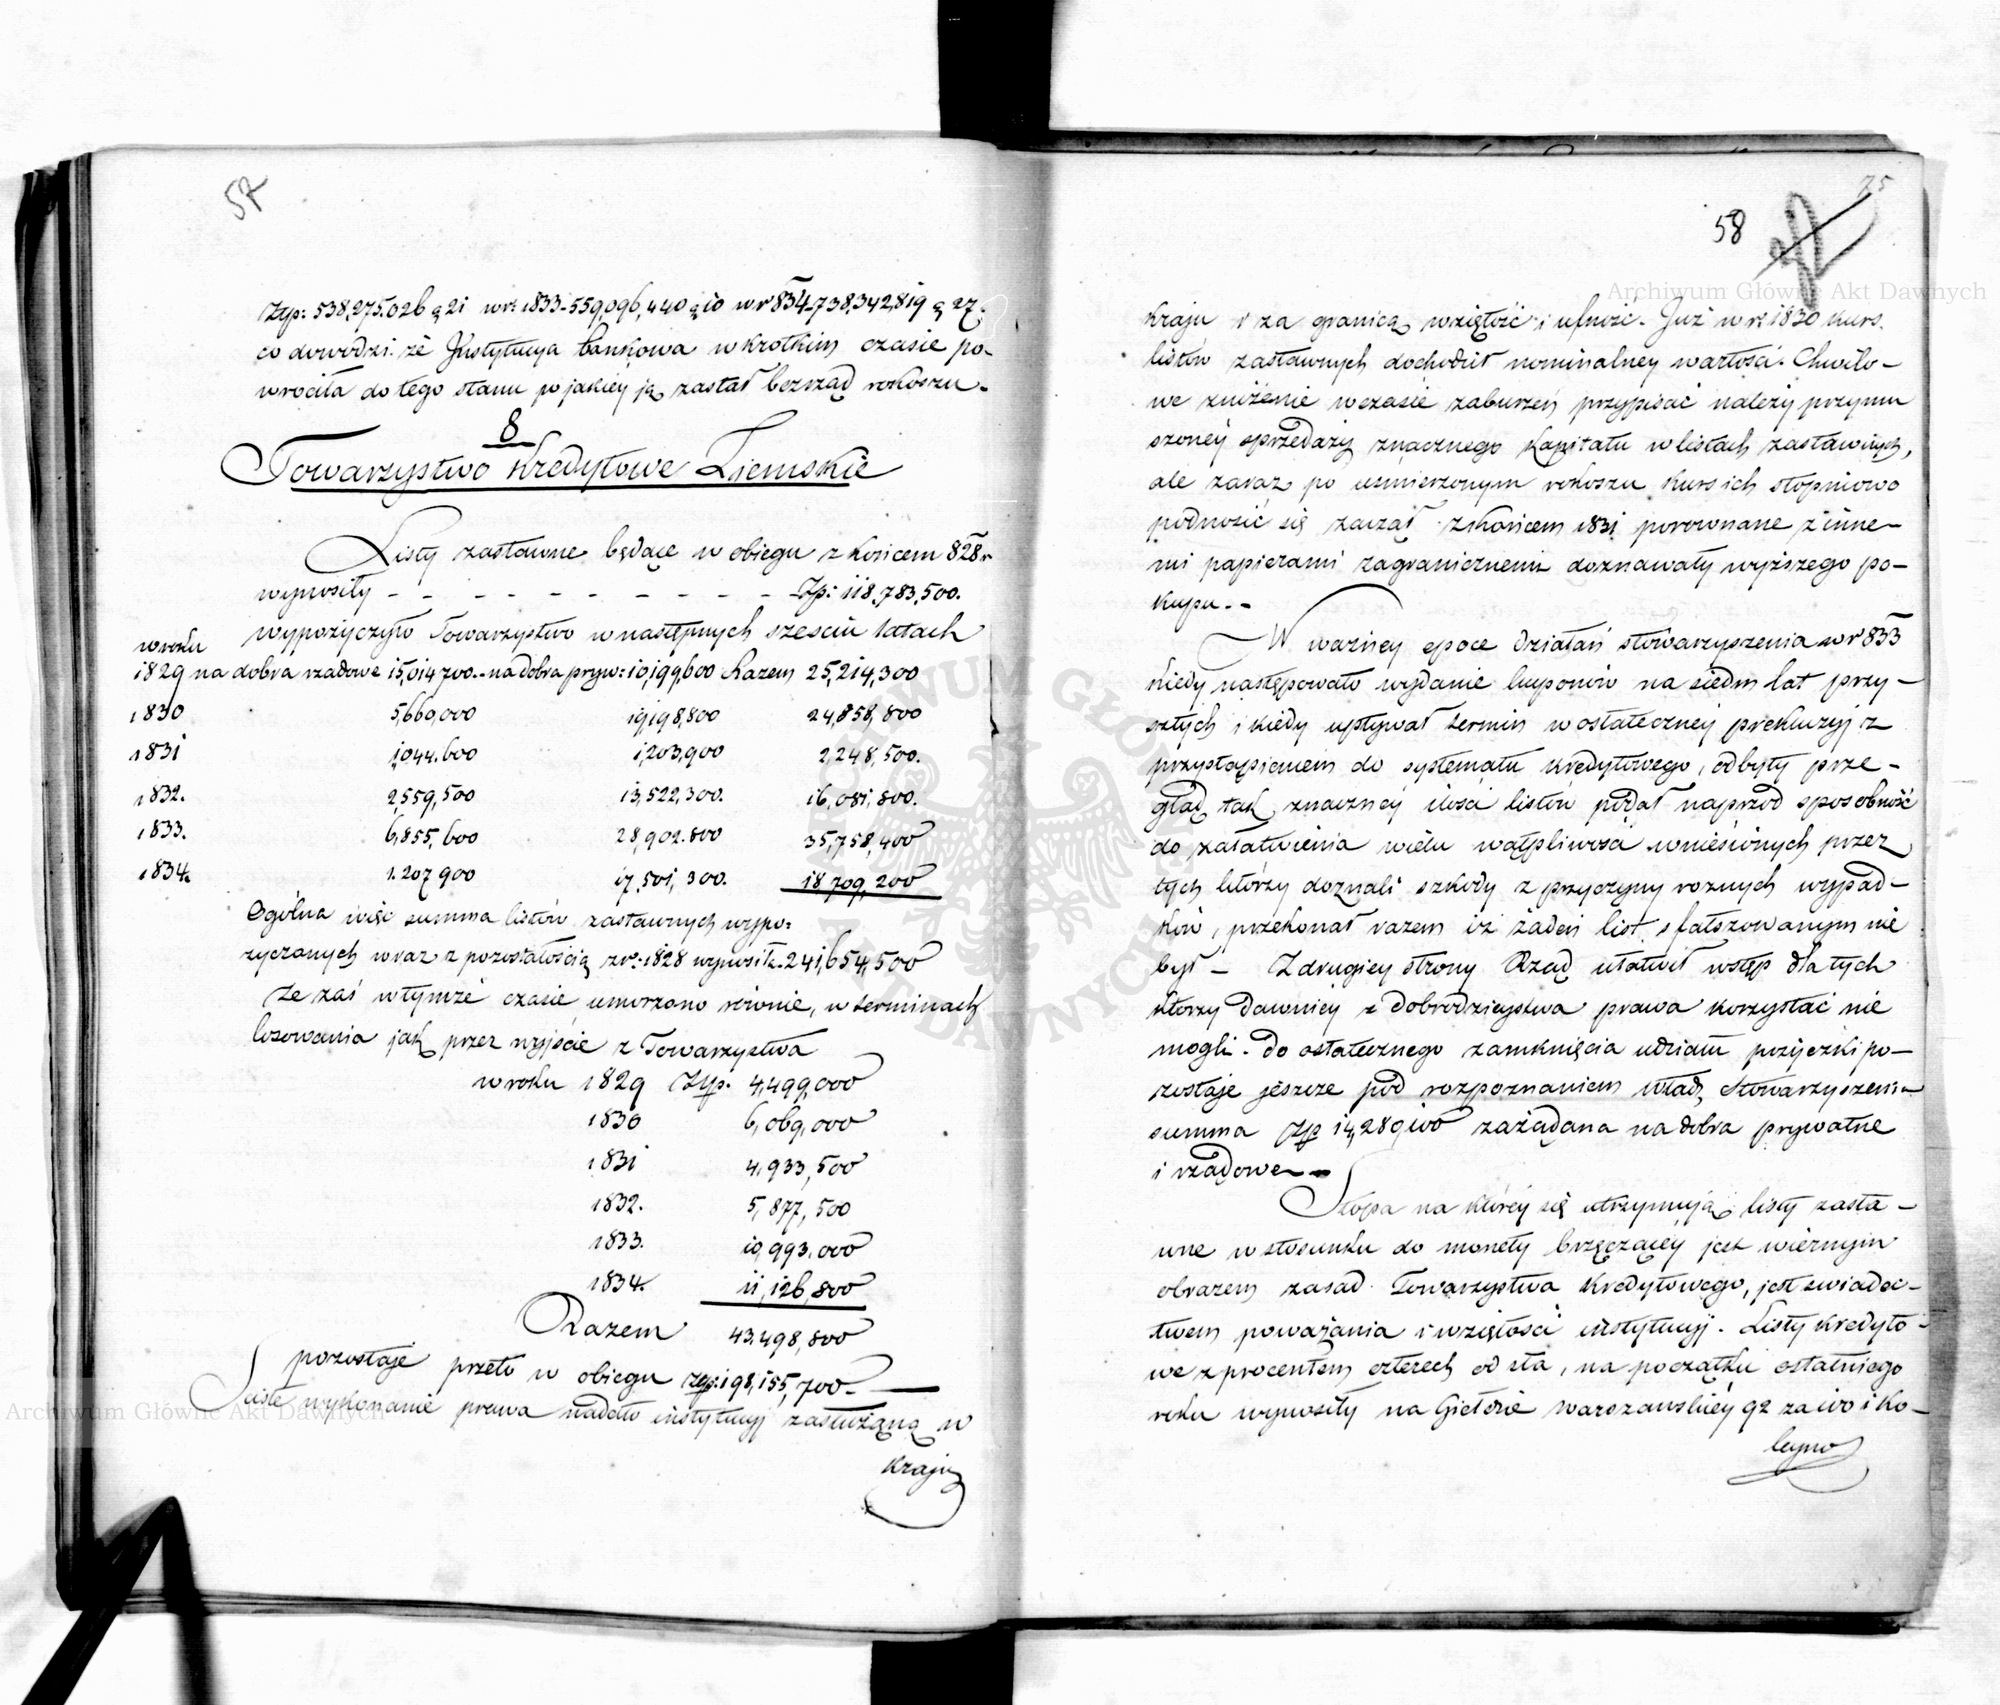 57
Złp: 538,275,026 g 21 w r: 1833 - 559,096,440 g 10 w r 834 - 738,342,819 g 27.
co dowodzi że Instytucya bankowa w krotkim czasie po-
wrociła do tego stanu w jakiey ją zastał bezrząd rokoszu.
8
Towarzystwo Kredytowe Ziemskie
Listy zastawne będące w obiegu z końcem 828 r
wynosiły - - - - - - - - - Złp: 118,783,500.
wypożyczyło Towarzystwo w następnych szesciu latach
w roku
1829 na dobra rządowe 15,014,700.- na dobra pryw: 10,199,600 Razem 25,214,300
1830 5,660,000 19,198,800 24,858,800
1831 1,044,600 1,203,900 2,248,500.
1832. 2,559,500 13,522,300. 16,081,800.
1833. 6,855,600 28,902,800 35,758,400
1834. 1.207,900 17,501,300. 18,709,200
Ogólna więc summa listów zastawnych wypo-
życzonych wraz z pozostałością z r: 1828 wynosiła 241,654,500
Że zaś w tymże czasie umorzono równie, w terminach
losowania jak przez wyjście z Towarzystwa
w roku 1829 Złp. 4,499,000
1830 6,069,000
1831 4,933,500
1832. 5,877,500
1833. 10,993,000
1834. 11,126,800
Razem 43,498,800
pozostaje przeto w obiegu złp: 198,155,700 -
Scisłe wykonanie prawa nadało instytucyj zasłużoną w
kraju
75
58
kraju i za granicą wziętość i ufność. Już w r: 1830 kurs
listów zastawnych dochodził nominalney wartości. Chwilo-
we zniżenie w czasie zaburzeń przypisać należy przymu
szoney sprzedaży znacznego kapitału w listach zastawnych,
ale zaraz po uśmierzonym rokoszu kurs ich stopniowo
podnosić się zaczął. Z końcem 1831 porownane z inne-
mi papierami zagranicznemi doznawały wyższego po-
kupu.-
W ważney epoce działań stowarzyszenia w r 833
kiedy następowało wydanie kuponów na siedm lat przy-
szłych i kiedy upływał termin w ostateczney prekluzyj z
przystąpieniem do systematu kredytowego, odbyty prze-
gląd tak znaczney ilości listów podał naprzod sposobność
do załatwienia wielu wątpliwości wnieśionych przez
tych którzy doznali szkody z przyczyny roznych wypad-
ków, przekonał razem iż żaden list sfałszowanym nie
był - Z drugiey strony Rząd ułatwił wstęp dla tych
którzy dawniey z dobrodzieystwa prawa korzystać nie
mogli. Do ostatecznego zamknięcia udziału pożyczki po-
zostaje jeszcze pod rozpoznaniem władz Stowarzyszenia
summa złp 14,289,100 zażądana na dobra prywatne
i rządowe -
Stopa na któréy się utrzymują listy zasta-
wne w stosunku do monety brzęczącéy jest wiernym
obrazem zasad Towarzystwa Kredytowego, jest swiadec-
twem poważania i wziętości instytucyj. Listy kredyto-
we z procentem czterech od sta, na początku ostatniego
roku wynosiły na Giełdzie warszawskiey 92 za 100 i ko-
leyno
Archiwum Główne Akt Dawnych
Archiwum Główne Akt Dawnych
ARCHIWUM GŁÓWNE
AKT DAWNYCH